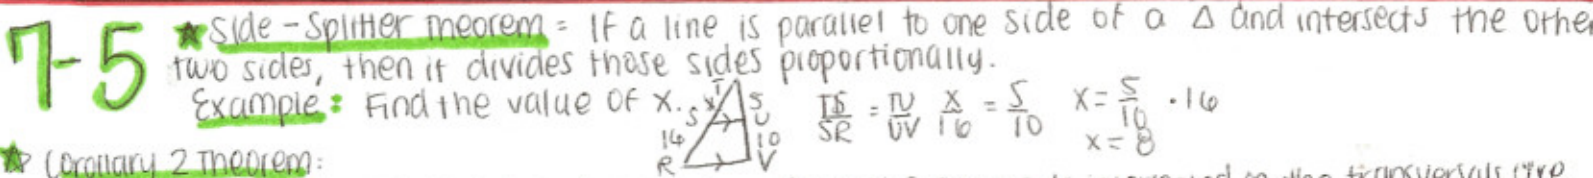 7-5 ★ Side-Splitter Theorem = If a line is parallel to one side of a Δ and intersects the othe
two sides, then it divides those sides proportionally.
Example: Find the value of x.
T
x 5
S U
16 10
R V
TS/SR = TU/UV x/16 = 5/10 x = 5/10 · 16
x = 8
★ Corollary 2 Theorem:
transversals are